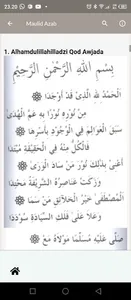 23.20
Maulid Azab
1. Alhamdulillahilladzi Qod Awjada
بِسْمِ اللهِ الرَّحْمٰنِ الرَّحِيْمِ
اَلْحَمْدُ لِلّٰهِ الَّذِيْ قَدْ أَوْجَدَا
مِنْ نُوْرِهِ نُوْرًا بِهِ عَمَّ الْهُدَى
سَبَقَ الْعَوَالِمَ فِي الْوُجُوْدِ بِأَسْرِهَا
فَالْكُلُّ مِنْهُ فِي الْحَقِيْقَةِ مُبْتَدَا
أَعْنِيْ بِذٰلِكَ نُوْرَ مَنْ سَادَ الْوَرَى
وَزَكَتْ عَنَاصِرُهُ الشَّرِيْفَةُ مَحْتِدَا
اَلْمُصْطَفَى خَيْرُ الْخَلَائِقِ مَنْ سَمَا
وَعَلَا عَلَى فَلَكِ السِّيَادَةِ سُؤْدَدَا
صَلَّى عَلَيْهِ مُسَلِّمًا مَوْلَاهُ مَعْ